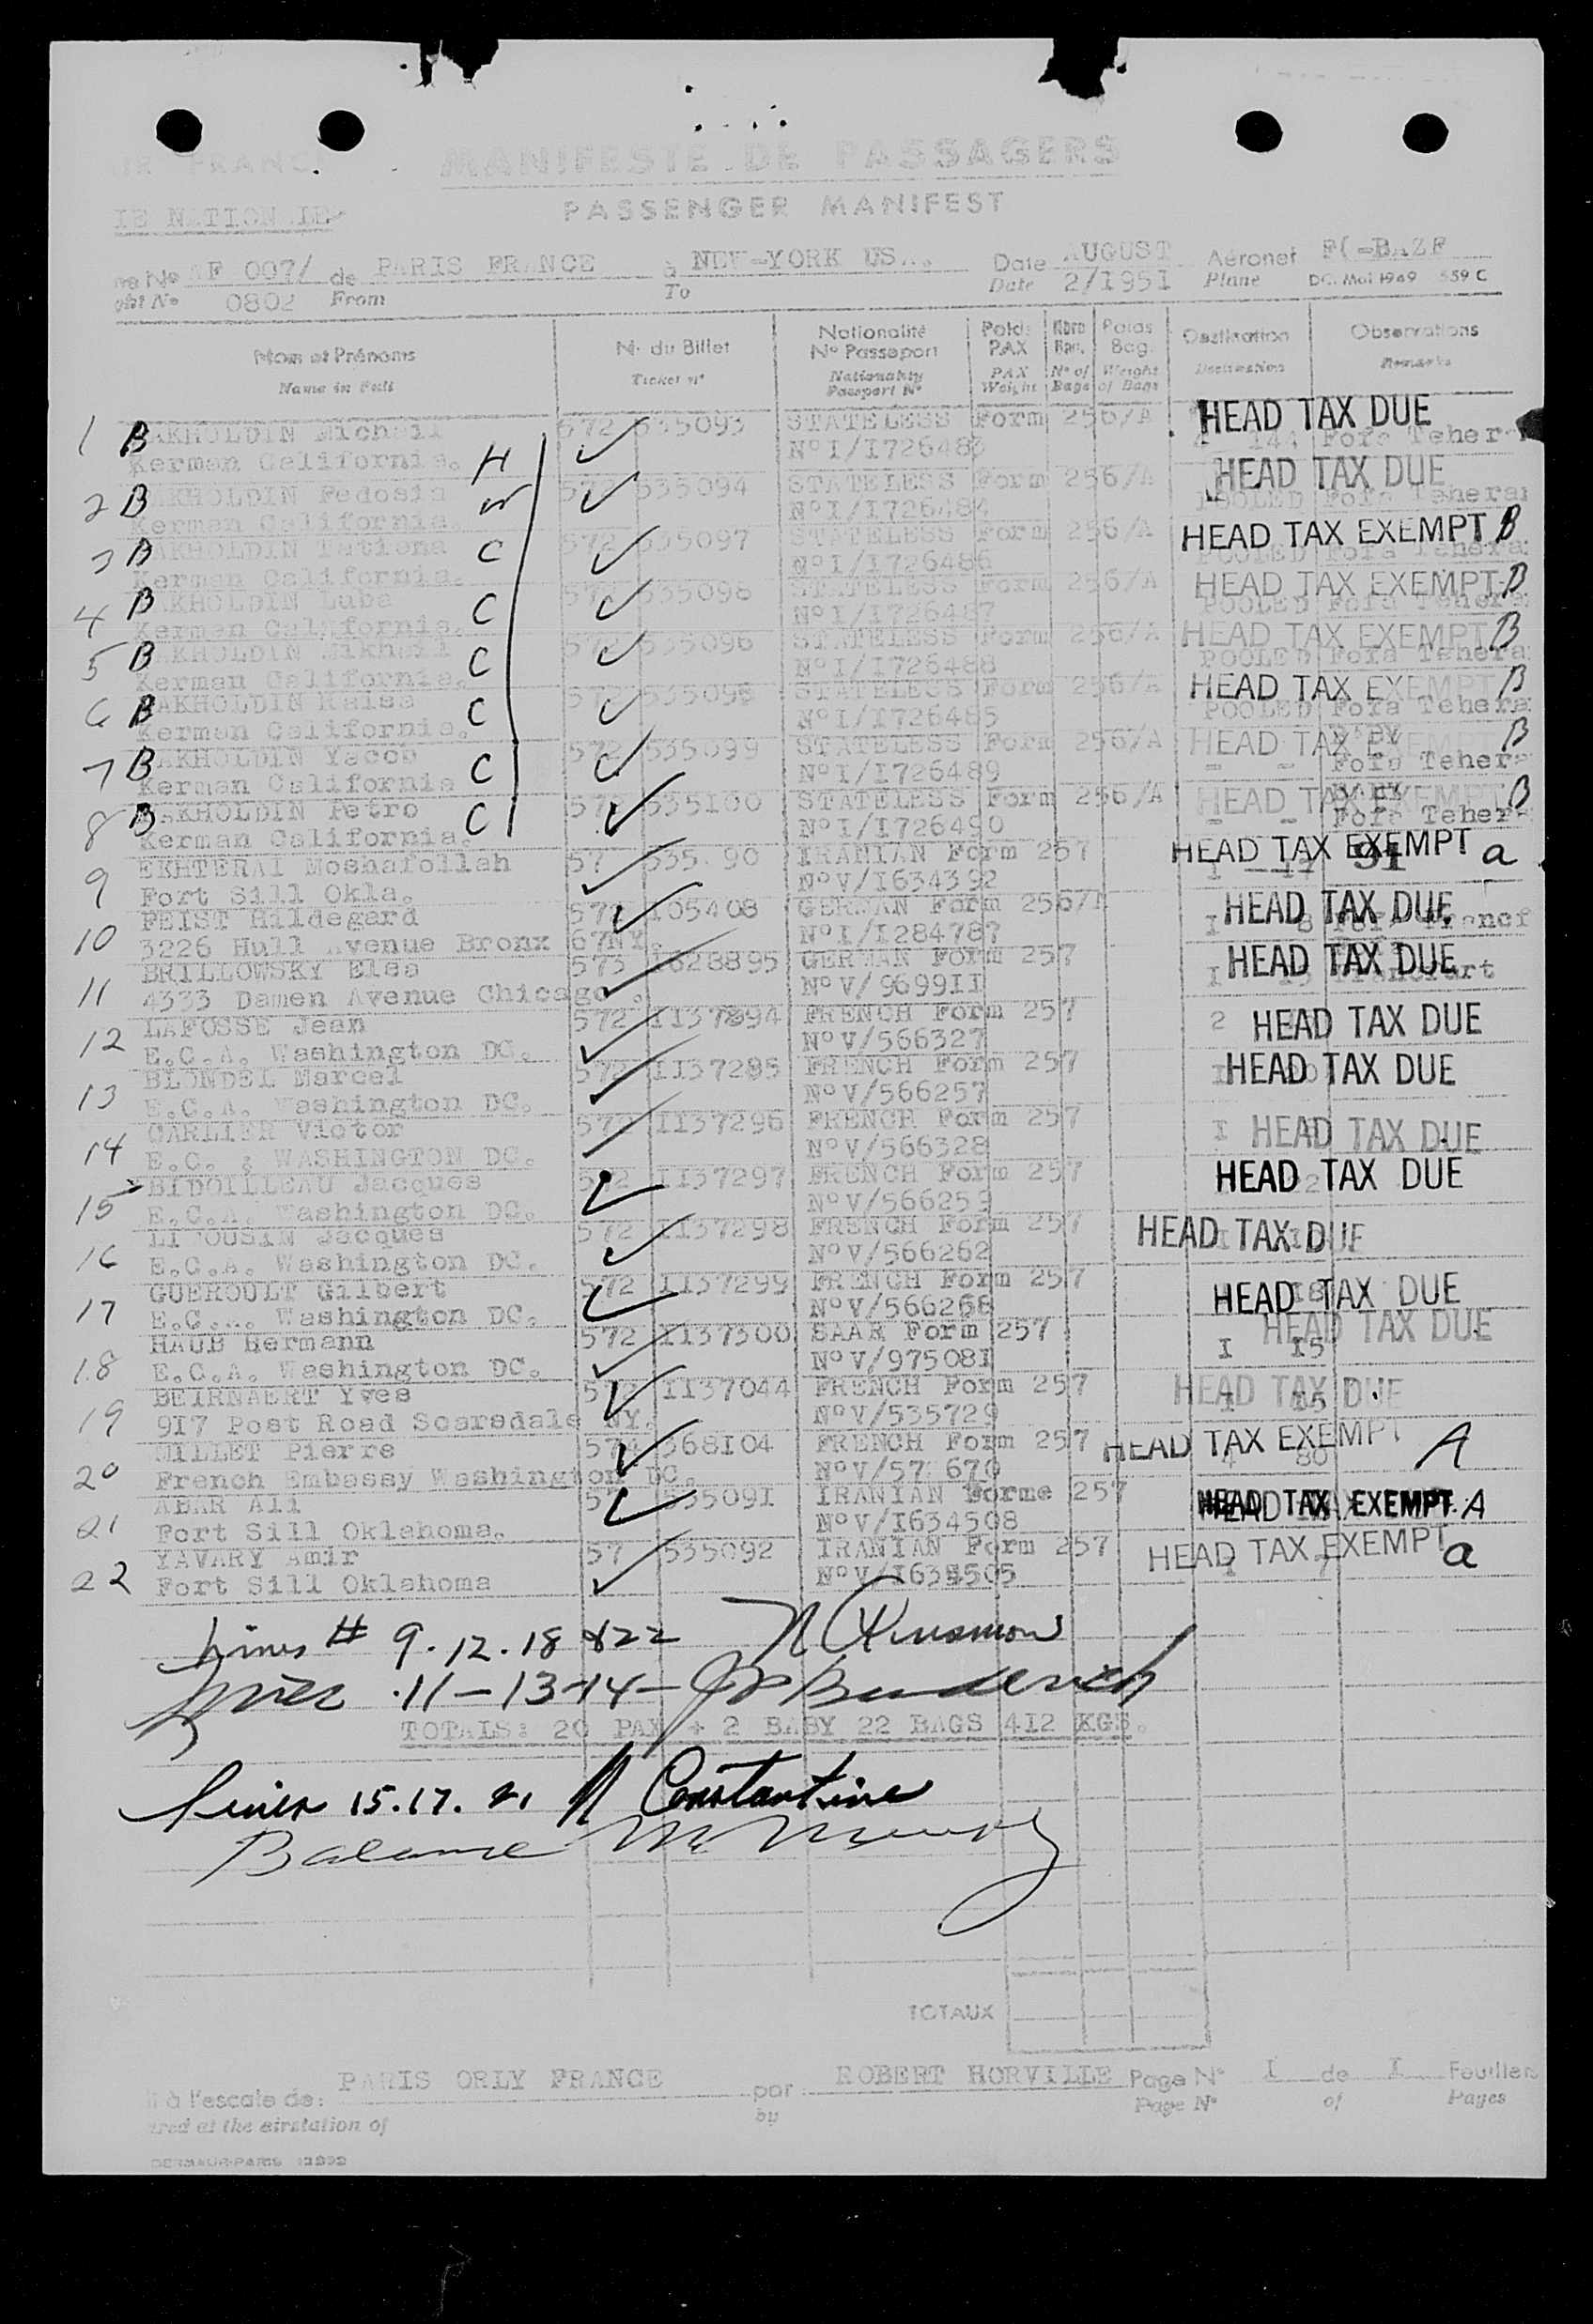 MANIFESTE DE PASSAGERS
PASSENGER MANIFEST
AF 007/ de PARIS FRANCE à NEW-YORK Date AUGUST Aéronef
0802 From To Date 2/1951 Plane DC. Mai 1949 559 C
Nom et Prénoms N. du Billet Nationalité Poids Nbre Poids Destination Observations
Nº Passeport PAX Bag. Bag.
Name in Full Ticket nº Nationality PAX Nº of Weight Destination Remarks
Passport Nº Weight Bags of Bags
1 BAKHOLDIN Michail 572 535093 STATELESS Form 256/A HEAD TAX DUE
Kerman California. H NºI/I726483 Fofa Teher
2 BAKHOLDIN Fedosia W 572 535094 STATELESS Form 256/A HEAD TAX DUE
Kerman California. NºI/I726484 POOLED Fofa Tehera
3 BAKHOLDIN Tationa C 572 535097 STATELESS Form 256/A HEAD TAX EXEMPT B
Kerman California. NºI/I726486 POOLED Fofa Tehera
4 BAKHOLDIN Luba C 535098 STATELESS Form 256/A HEAD TAX EXEMPT B
Kerman California. NºI/I726487 POOLED Fofa Tehera
5 BAKHOLDIN Mikhail C 572 535096 STATELESS Form 256/A HEAD TAX EXEMPT B
Kerman California. NºI/I726488 POOLED Fofa Tehera
6 BAKHOLDIN Raisa C 572 STATELESS Form 256/A HEAD TAX EXEMPT B
Kerman California. NºI/I726485 POOLED Fofa Tehera
7 BAKHOLDIN Yacob C 572 535099 STATELESS Form 256/A HEAD TAX EXEMPT BABY B
Kerman California NºI/I726489 Fofa Teher
8 BAKHOLDIN Petro C 572 535100 STATELESS Form 256/A HEAD TAX EXEMPT BABY B
Kerman California. NºI/I726490 Fofa Teher
9 EKHTERAI Moshafollah 57 535 90 IRANIAN Form 257 HEAD TAX EXEMPT a
Fort Sill Okla. NºV/I634392 I 17 91
10 FEIST Hildegard 572 105408 GERMAN Form 256/A HEAD TAX DUE
3226 Hull Avenue Bronx 67NY. NºI/I284787
11 BRILLOWSKY Elsa 573 1628895 GERMAN Form 257 HEAD TAX DUE
4333 Damen Avenue Chicago . NºV/ 969911
12 LAFOSSE Jean 572 1137294 FRENCH Form 257 2 HEAD TAX DUE
E.C.A. Washington DC. NºV/566327
13 BLONDEL Marcel 572 1137285 FRENCH Form 257 HEAD TAX DUE
E.C.A. Washington DC. NºV/566257
14 CARLIER Victor 572 1137296 FRENCH Form 257 I HEAD TAX DUE
E.C. WASHINGTON DC. NºV/566328
15 BIDOILLEAU Jacques 572 1137297 FRENCH Form 257 HEAD TAX DUE
E.C.A. Washington DC. NºV/566259
16 LIMOUSIN Jacques 572 1137298 FRENCH Form 257 HEAD TAX DUE
E.C.A. Washington DC. NºV/566262
17 GUEROULT Gilbert 572 1137299 FRENCH Form 257 HEAD TAX DUE
E.C.A. Washington DC. NºV/566268
18 HAUB Hermann 572 1137300 SAAR Form 257 HEAD TAX DUE
E.C.A. Washington DC. NºV/975081 I 15
19 BEIRNAERT Yves 572 1137044 FRENCH Form 257 HEAD TAX DUE
917 Post Road Scarsdale NY. NºV/535729
20 MILLET Pierre 574 368104 FRENCH Form 257 HEAD TAX EXEMPT A
French Embassy Washington DC. NºV/57 670 4 80
21 ABAR Ali 57 535091 IRANIAN Forme 257 HEAD TAX EXEMPT A
Fort Sill Oklahoma. NºV/I634508
22 YAVARY Amir 57 535092 IRANIAN Form 257 HEAD TAX EXEMPT a
Fort Sill Oklahoma
Lines # 9.12.18 &22 N Kinsmon
Lines 11-13-14-
TOTALS: 20 PAX + 2 BABY 22 BAGS 412 KGS.
Lines 15.17.21 N Constantine
Balance
TOTAUX
à l'escale de: PARIS ORLY FRANCE par ROBERT HORVILLE Page Nº I de I Feuillets
at the airstation of by Page Nº of Pages